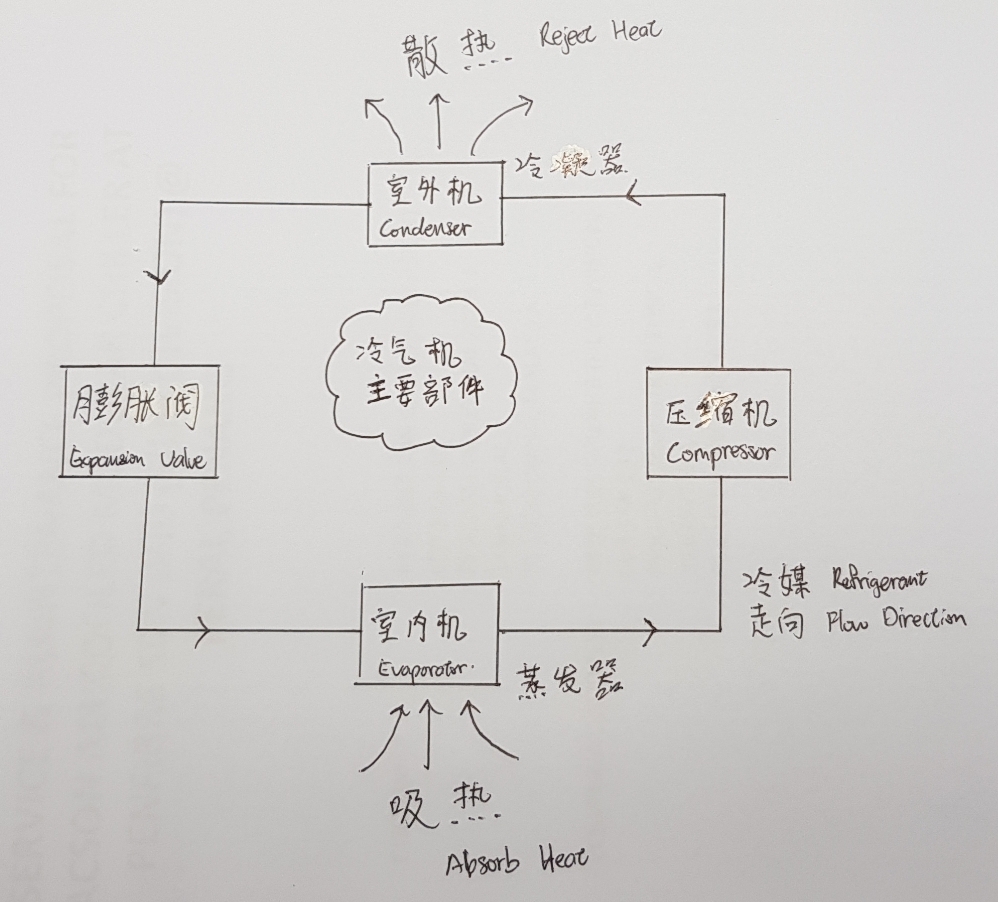 散热 Reject Heat
冷凝器
室外机
Condenser
冷气机
主要部件
膨胀阀
Expansion Valve
压缩机
Compressor
冷媒 Refrigerant
走向 Flow Direction
室内机
Evaporator.
蒸发器
吸热
Absorb Heat